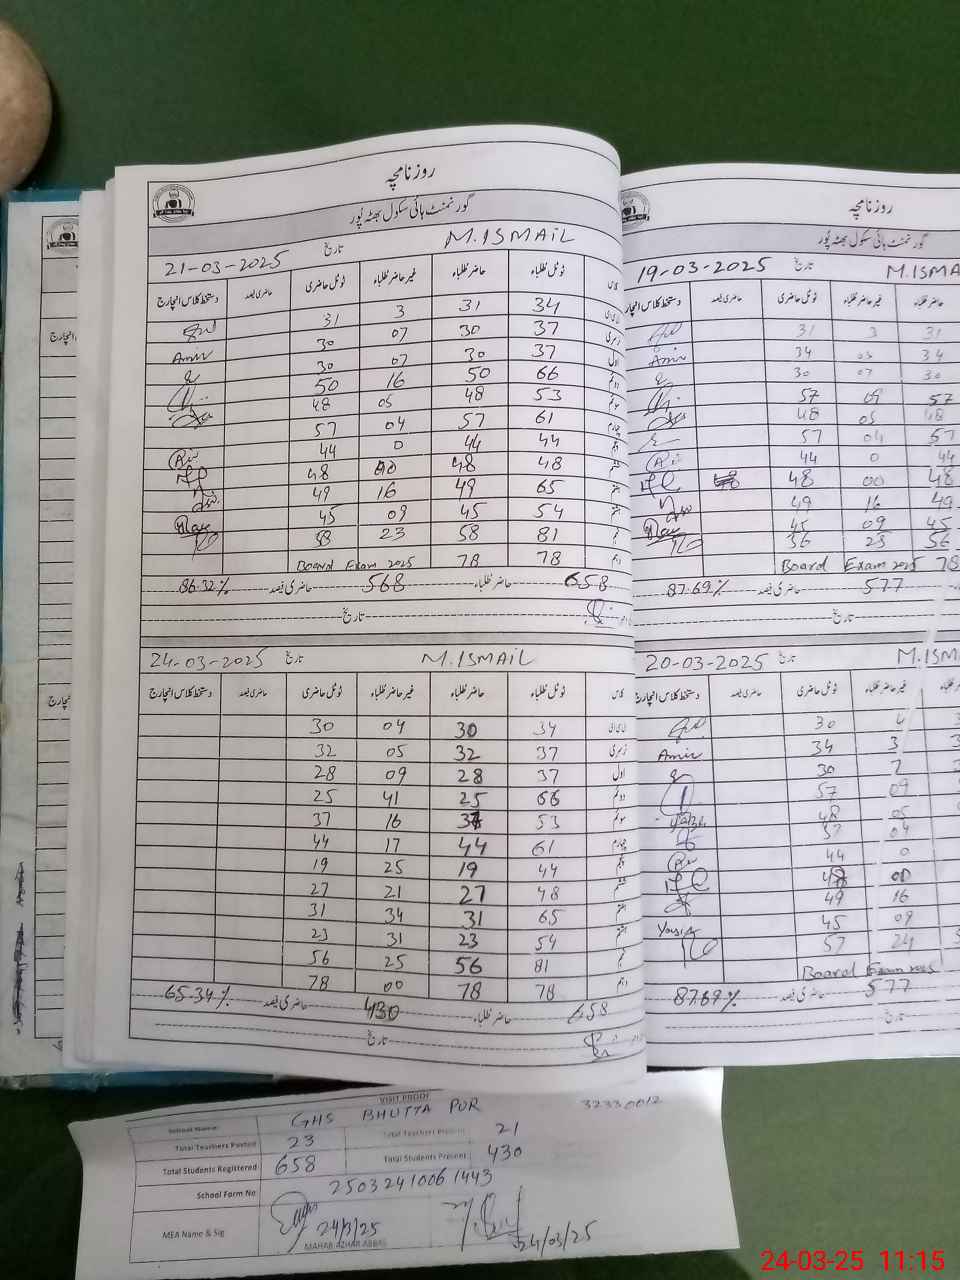 روزنامچہ
گورنمنٹ ہائی سکول بھٹہ پور
21-03-2025 تاریخ M.ISMAIL
کلاس ٹوٹل طلباء حاضر طلباء غیر حاضر طلباء ٹوٹل حاضری حاضری فیصد دستخط کلاس انچارج
34 31 3 31
نرسری 37 30 07 30 Amir
اول 37 30 07 30
دوئم 66 50 16 50
سوئم 53 48 05 48
چہارم 61 57 04 57
پنجم 44 44 0 44
ششم 48 48 00 48
ہفتم 65 49 16 49
ہشتم 54 45 09 45
نہم 81 58 23 58
دہم 78 78 Board Exam 2025
658 حاضر طلباء 568 حاضری فیصد 86.32%
تاریخ
24-03-2025 تاریخ M.ISMAIL
کلاس ٹوٹل طلباء حاضر طلباء غیر حاضر طلباء ٹوٹل حاضری حاضری فیصد دستخط کلاس انچارج
34 30 04 30
نرسری 37 32 05 32
اول 37 28 09 28
دوئم 66 25 41 25
سوئم 53 37 16 37
چہارم 61 44 17 44
پنجم 44 19 25 19
ششم 48 27 21 27
ہفتم 65 31 34 31
ہشتم 54 23 31 23
نہم 81 56 25 56
دہم 78 78 00 78
658 حاضر طلباء 430 حاضری فیصد 65.34%
تاریخ
روزنامچہ
گورنمنٹ ہائی سکول بھٹہ پور
19-03-2025 تاریخ M.ISMA
حاضر طلباء غیر حاضر طلباء ٹوٹل حاضری حاضری فیصد دستخط کلاس انچارج
31 3 31
34 03 34 Amir
30 07 30
57 09 57
48 05 48
57 04 57
44 0 44
48 00 48
49 16 49
45 09 45
56 25 56
78 Board Exam 2025
577 حاضری فیصد 87.69%
تاریخ
20-03-2025 تاریخ M.ISM
غیر حاضر طلباء ٹوٹل حاضری حاضری فیصد دستخط کلاس انچارج
4 30
3 34 Amir
7 30
09 57
05 48
04 57
0 44
00 48
16 49
09 45
24 57
Board Exam 2025
577 حاضری فیصد 87.69%
تاریخ
VISIT PROOF
School Name: GHS BHUTTA PUR 32330012
Total Teachers Posted 23 Total Teachers Present 21
Total Students Registered 658 Total Students Present 430
School Form No 25032410061443
MEA Name & Sig 24/3/25 24/03/25
MAHAR AZHAR ABBAS
24-03-25 11:15